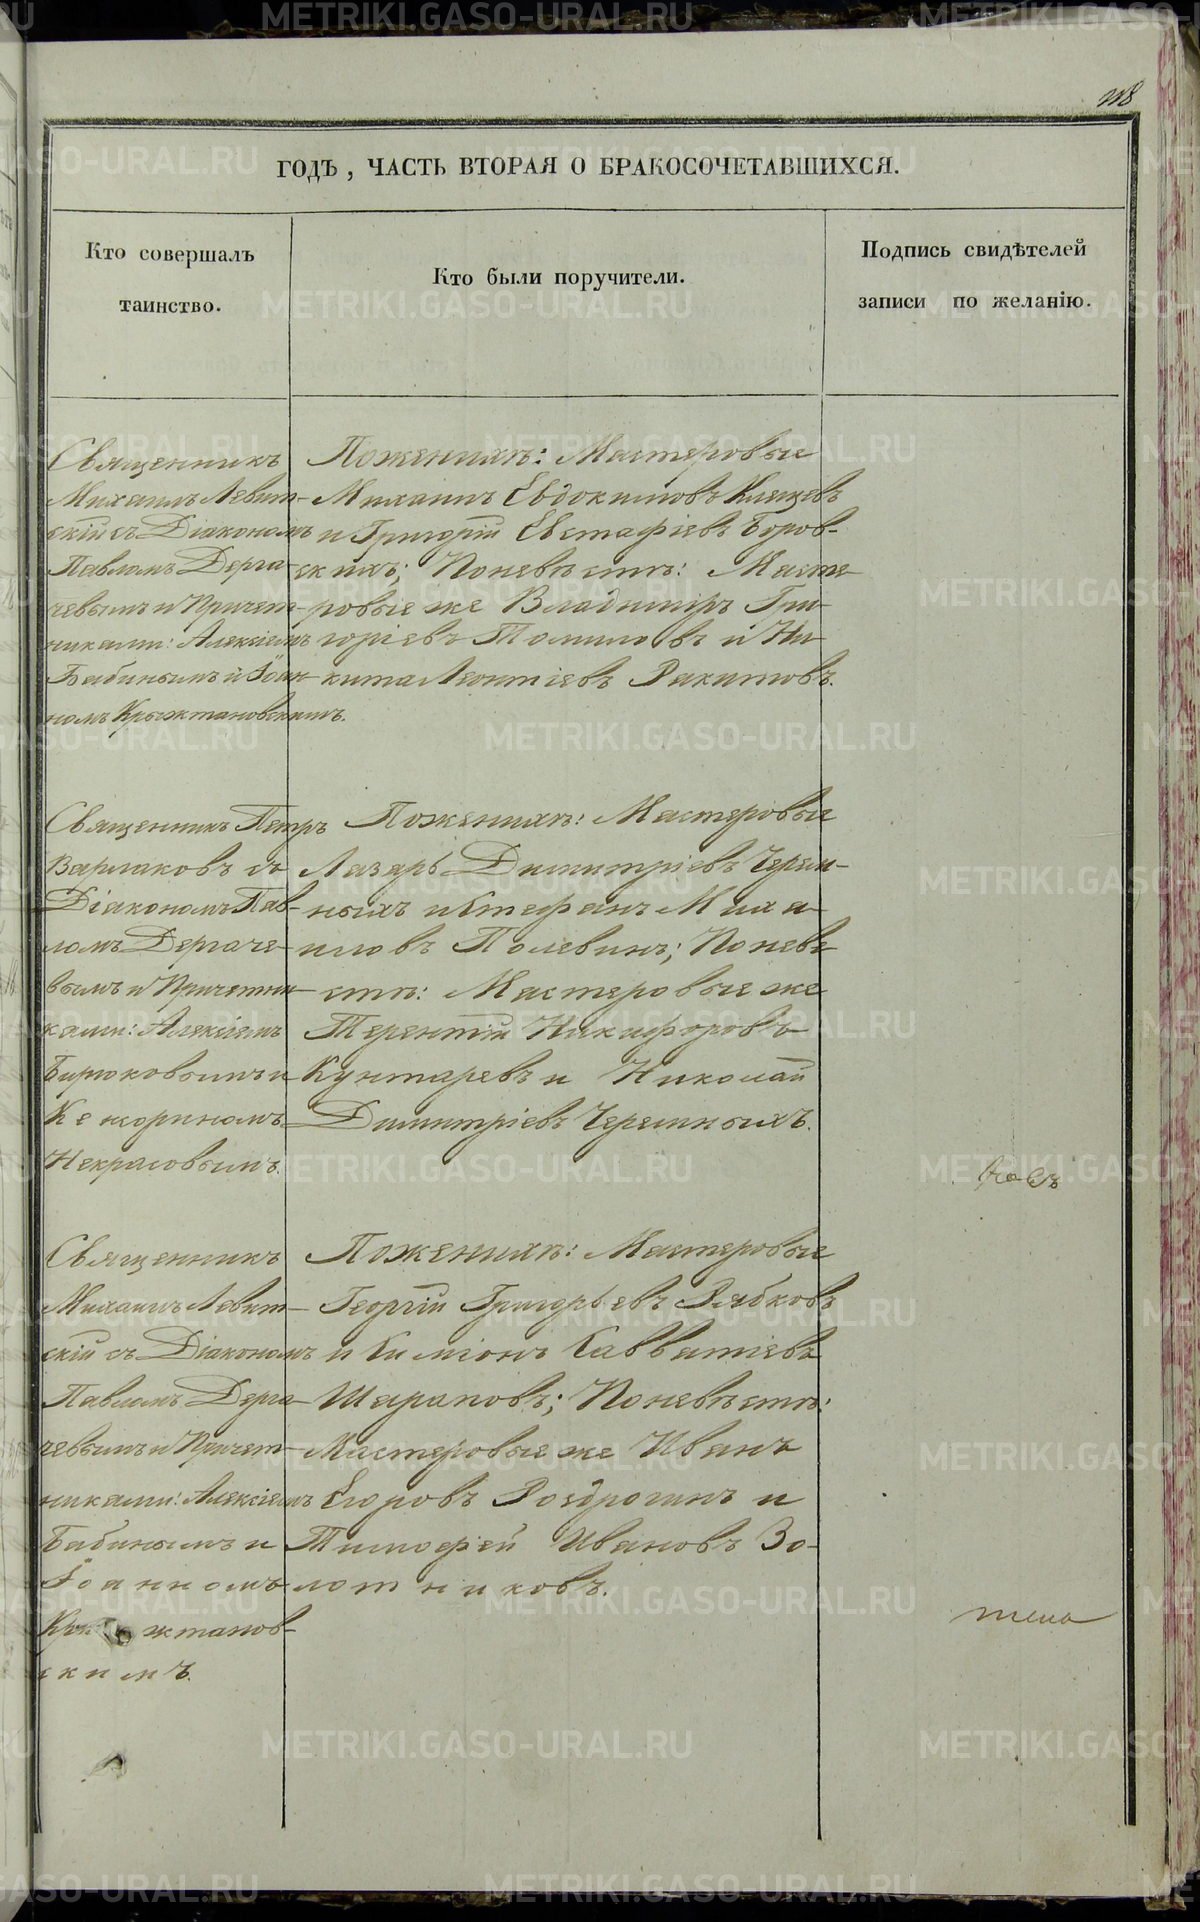 118
ГОДЪ, ЧАСТЬ ВТОРАЯ О БРАКОСОЧЕТАВШИХСЯ.
Кто совершалъ
таинство.
Кто были поручители.
Подпись свидѣтелей
записи по желанію.
Священникъ
Михаилъ Левит-
скій съ Діакономъ
Павломъ Дерга-
чевымъ и Причет-
никами: Алексіемъ
Бабинымъ и Іоан-
номъ Крыжтановскимъ.
Поженихѣ: Мастеровые
Михаилъ Евдокимовъ Клещевъ
и Григорій Евстафіевъ Боров-
скихъ; Поневѣстѣ: Масте-
ровые же Владиміръ Гри-
горіевъ Томиловъ и Ни-
кита Леонтіевъ Ракитовъ.
Священникъ Петръ
Варлаковъ съ
Діакономъ Пав-
ломъ Дергаче-
вымъ и Причетни-
ками: Алексіемъ
Бирюковымъ и
Некрасовымъ.
Поженихѣ: Мастеровые
Лазарь Димитріевъ Черем-
ныхъ и Стефанъ Миха-
иловъ Полевинъ; Поневѣ-
стѣ: Мастеровые же
Терентій Никифоровъ
Кунтаревъ и Николай
Димитріевъ Черемныхъ.
Священникъ
Михаилъ Левит-
скій съ Діакономъ
Павломъ Дерга-
чевымъ и Причет-
никами: Алексіемъ
Бабинымъ и
Іоанномъ
Крыжтанов-
скимъ.
Поженихѣ: Мастеровые
Георгій Григорьевъ Рябковъ
и Савватіевъ
Шараповъ; Поневѣстѣ:
Мастеровые же Иванъ
Егоровъ и
Тимофей Ивановъ Зо-
лотниковъ.
METRIKI.GASO-URAL.RU